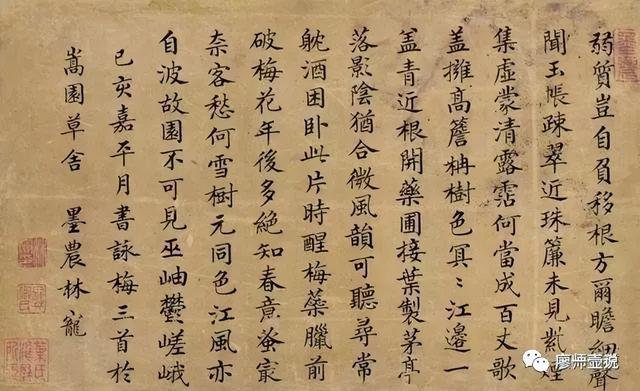 弱質豈自負移根方爾瞻細聲
聞玉帳疎翠近珠簾未見紫煙
集虛蒙清露霑何當成百丈歌
蓋擁高簷枏樹色冥〻江邊一
盖青近根開藥圃接葉製茅亭
落影陰猶合微風韻可聽尋常
躭酒困卧此片時醒梅蘂臘前
破梅花年後多絕知春意蚤最
柰客愁何雪樹元同色江風亦
自波故園不可見巫岫鬱嵯峨
己亥嘉平月書詠梅三首於
嵩園草舍 墨農林寵
廖师壶说